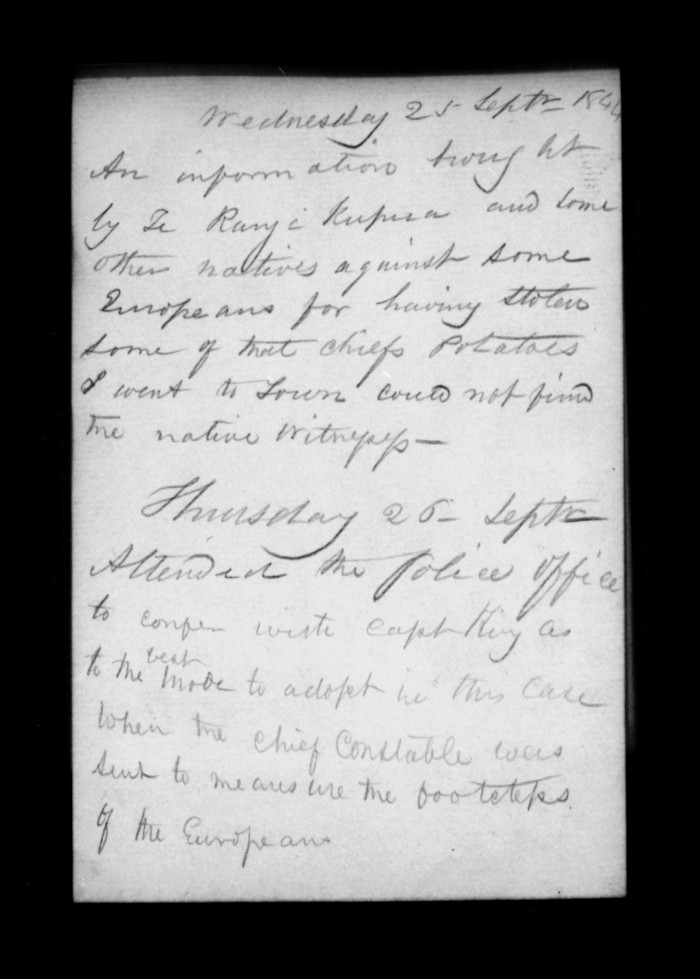 Wednesday 25 Septr 1844
An information brought
by Te Rangi Kupua and some
other natives against some
Europeans for having stolen
some of that chiefs Potatoes
I went to Town could not find
the native Witnesses—
Thursday 26 - Septr
Attended the Police Office
to confer with Capt King as
to the best mode to adopt in this case
When the chief Constable was
sent to measure the footsteps
of the Europeans